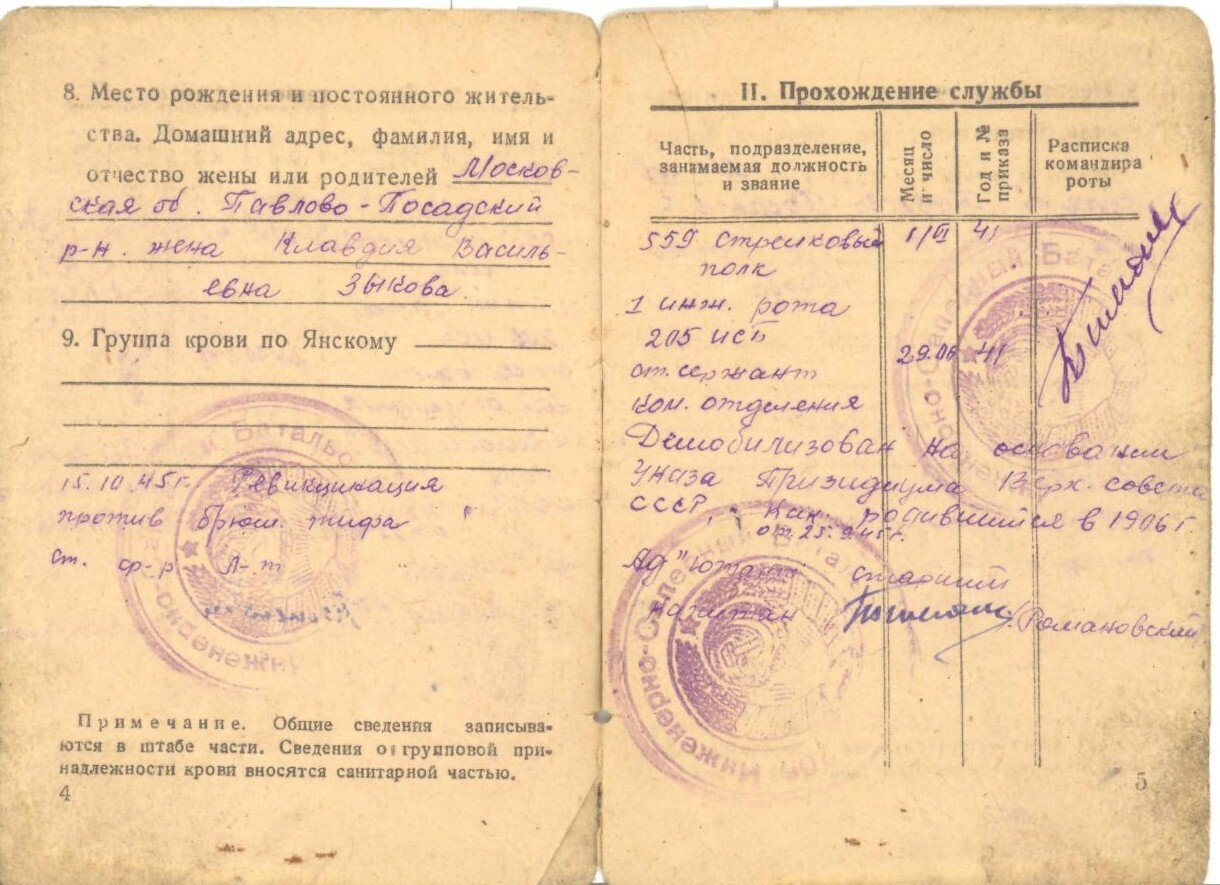 8. Место рождения и постоянного житель-
ства. Домашний адрес, фамилия, имя и
отчество жены или родителей Москов-
ская об. Павлово-Посадский
р-н. жена Клавдия Василь-
евна Зыкова
9. Группа крови по Янскому
15.10.45г. Ревакцинация
против брюш. тифа
ст.
л-т
Примечание. Общие сведения записыва-
ются в штабе части. Сведения о групповой при-
надлежности крови вносятся санитарной частью.
4
II. Прохождение службы
Часть, подразделение,
занимаемая должность
и звание
Месяц
и число
Год и №
приказа
Расписка
командира
роты
559 стрелковый 41
полк
1 инж. рота
205 исб 29.06 41
ст. сержант
ком. отделения
Демобилизован на основании
Указа Призидиума Верх. совета
СССР, как родившийся в 1906 г.
от 25.9.45г.
Ад"ютант старший
капитан Романовский
5
Инженерно-Саперный Баталь
Инженерно-Саперный Батал
Инженерно-Саперный Батал